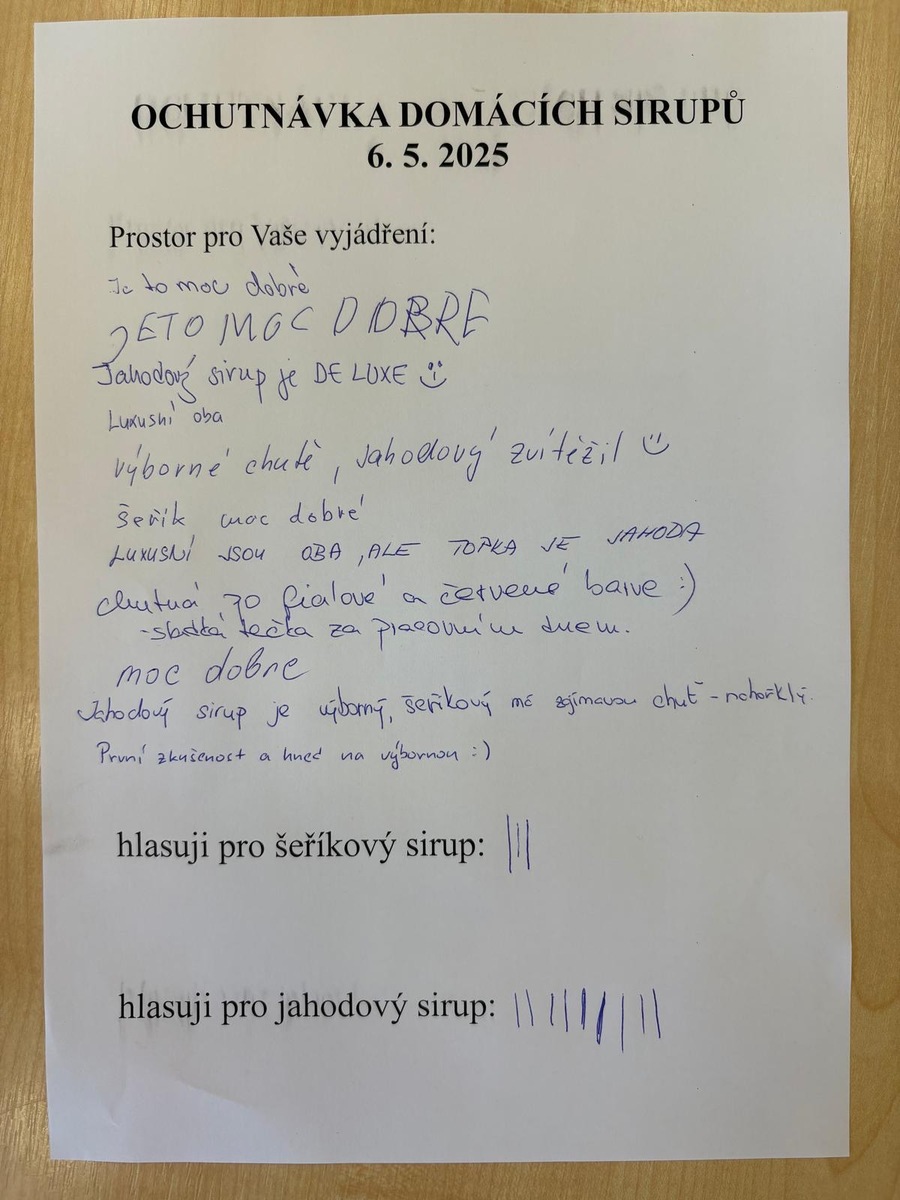 OCHUTNÁVKA DOMÁCÍCH SIRUPŮ
6. 5. 2025
Prostor pro Vaše vyjádření:
Je to moc dobré
JE TO MOC DOBRE
Jahodový sirup je DE LUXE
Luxusní oba
výborné chutě, jahodový zvítězil
šeřík moc dobré
LUXUSNÍ JSOU OBA, ALE TOPKA JE JAHODA
chutná po fialové a červené barvě :)
- sladká tečka za pracovním dnem.
moc dobre
Jahodový sirup je výborný, šeříkový má zajímavou chuť - nahořklý.
První zkušenost a hned na výbornou :)
hlasuji pro šeříkový sirup: |||
hlasuji pro jahodový sirup: